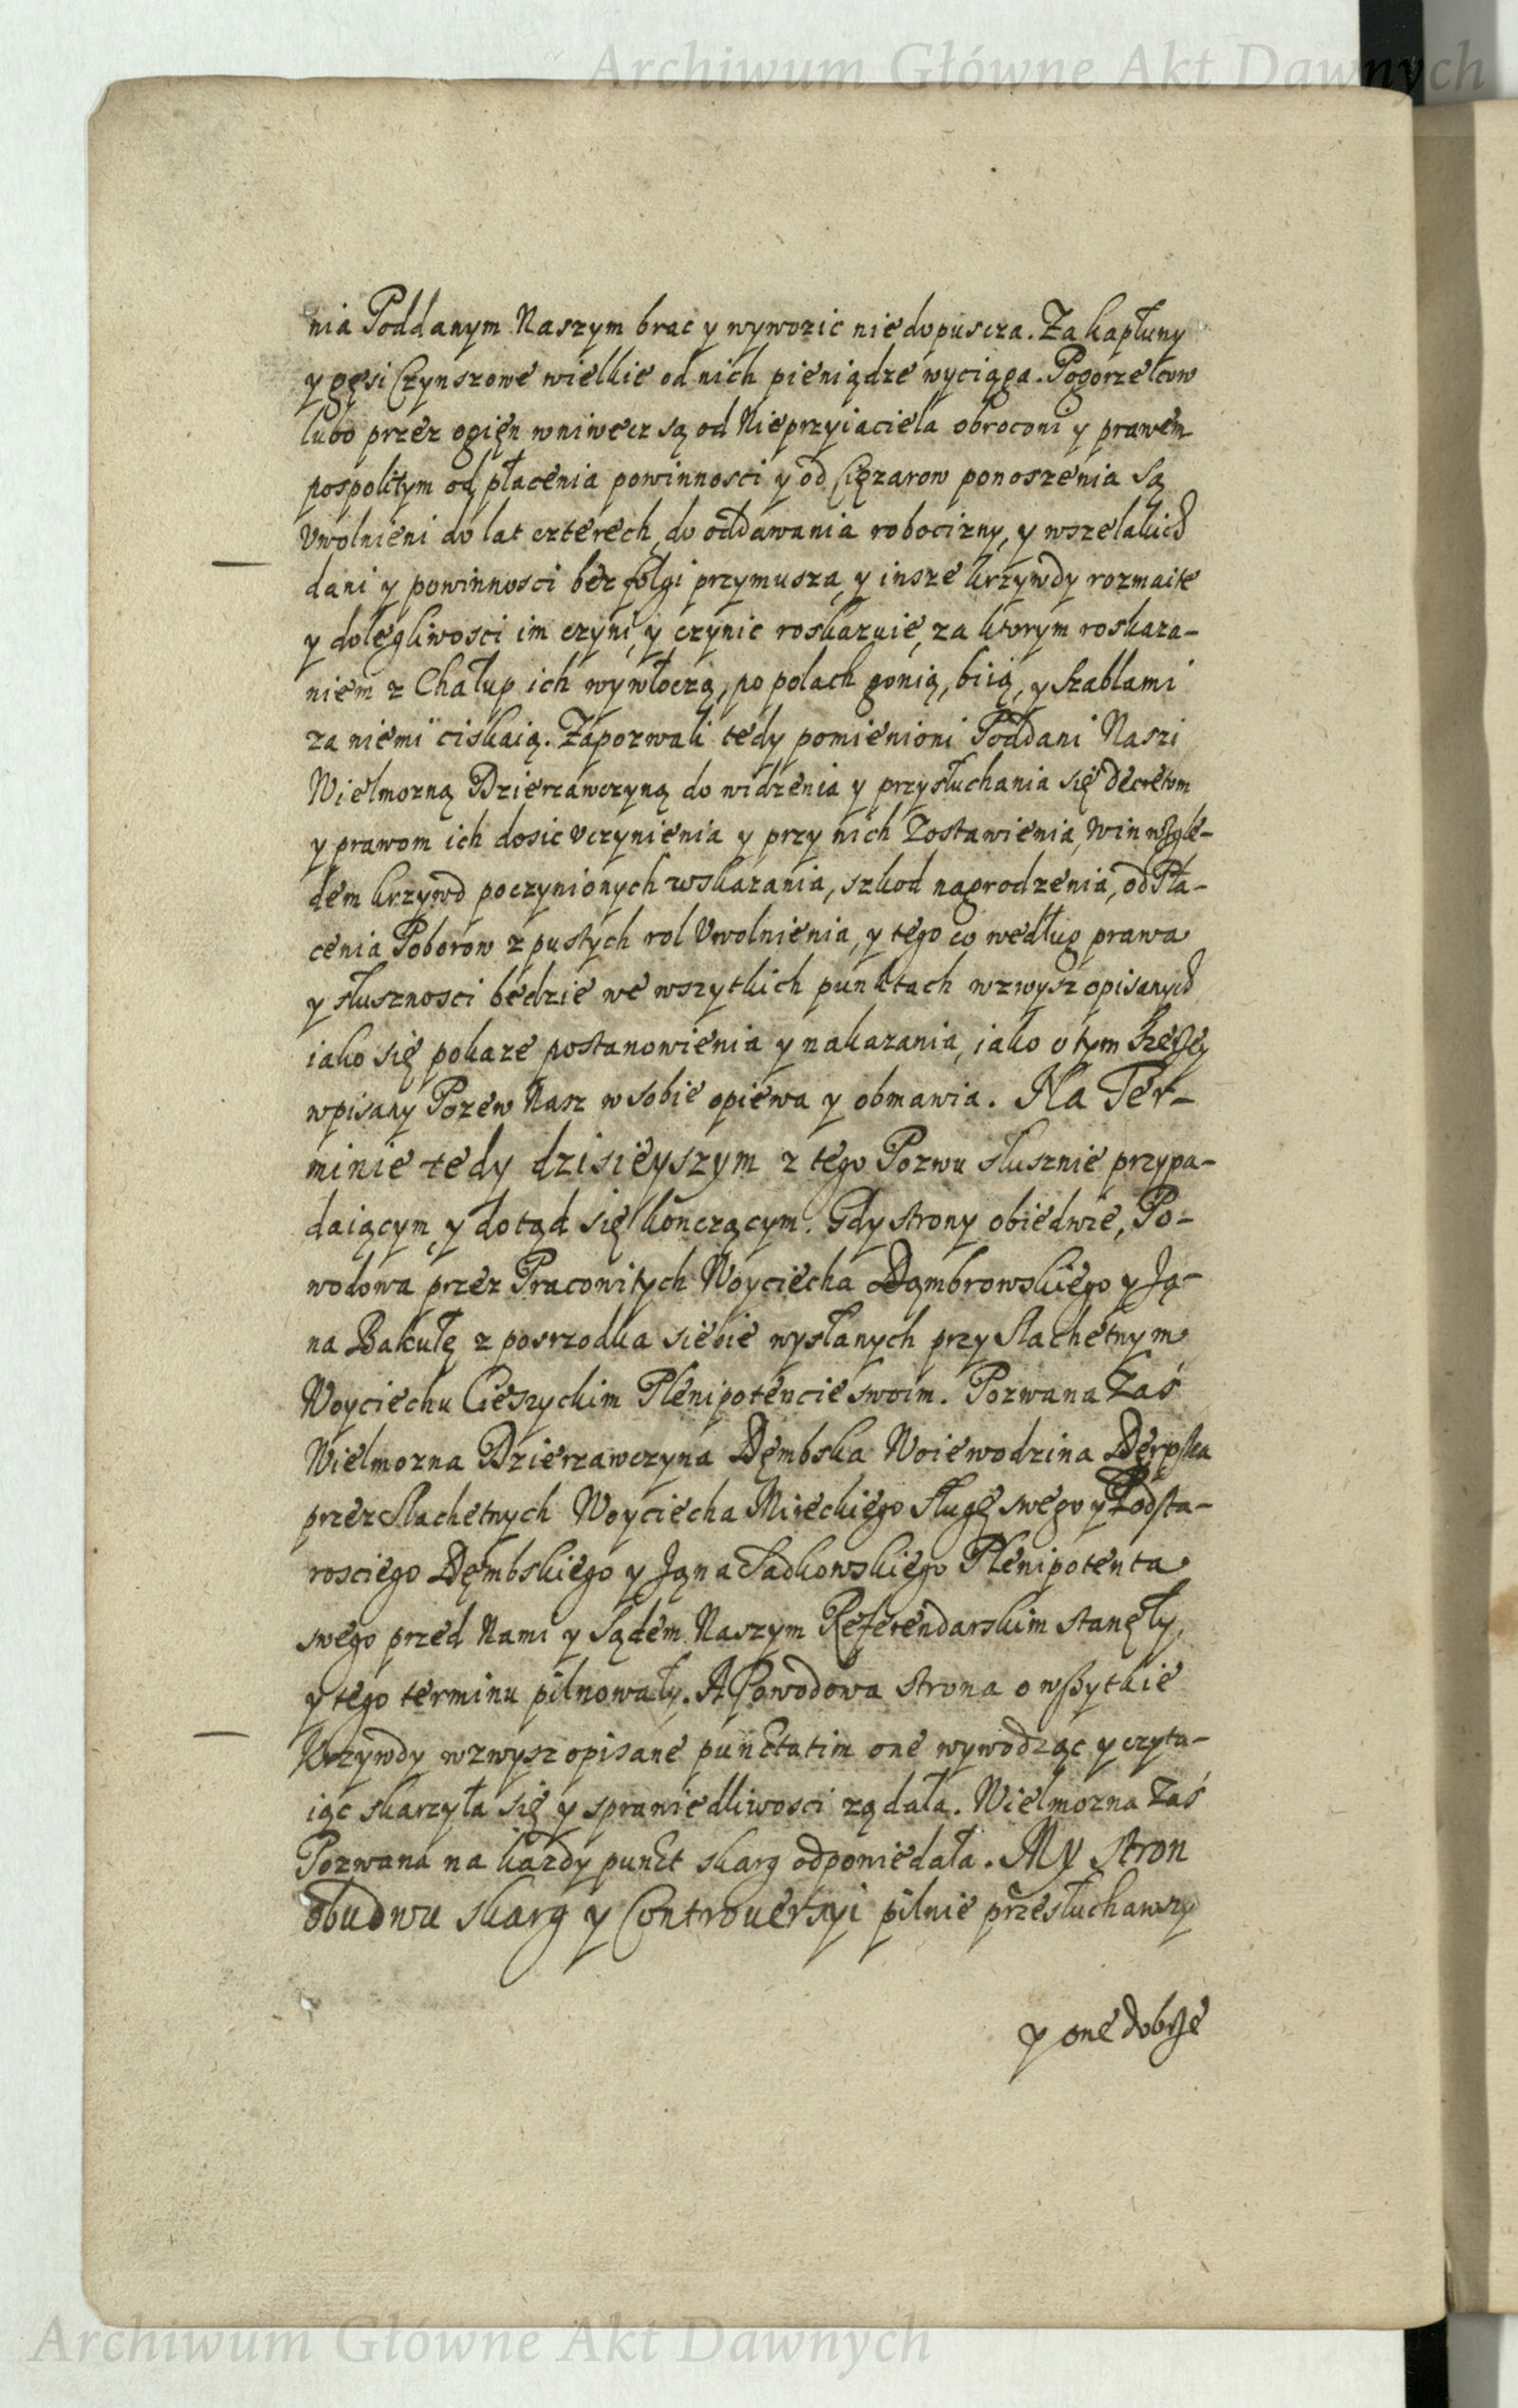 Archiwum Główne Akt Dawnych
nia Poddanym Naszym brac y wywozic niedopuscza. Za kapłuny
y gęsi Czynszowe wielkie od nich pieniądze wyciąga. Pogorzelcow
lubo przez ogięn wniwecz są od Nieprzyiaciela obroconi y prawem
pospolitym od płacenia powinnosci y od Cięzarow ponoszenia są
Uwolnieni do lat czterech, do oddawania robocizny, y wszelakich
dani y powinnosci bez folgi przymusza, y insze krzywdy rozmaite
y dolegliwosci im czyni, y czynic roskazuie, za ktorym roskaza-
niem z Chałup ich wywłoczą, po polach gonią, biią, y szablami
za niemi ciskaią. Zapozwali tedy pomienioni Poddani Naszi
Wielmozną Dzierzawczyną do widzenia y przysłuchania się decretom
y prawom ich dosic uczynienia y przy nich Zostawienia, win wzglę-
dem krzywd poczynionych wskazania, szkod nagrodzenia, od Pła-
cenia Poborow z pustych rol Uwolnienia, y tego co według prawa
y słusznosci będzie we wszytkich punktach wzwysz opisanych
iako się pokaze postanowienia y nakazania, iako o tym szerzey
wpisany Pozew Nasz w sobie opiewa y obmawia. Na Ter-
minie tedy dzisieyszym z tego Pozwu słusznie przypa-
daiącym, y dotąd się kończącym. Gdy strony obiedwie, Po-
wodowa przez Pracowitych Woyciecha Dąmbrowskiego y Ją-
na Bakułę z posrzodka siebie wysłanych przy Slachetnym
Woyciechu Cieszyckim Plenipotencie swoim. Pozwana Zaś
Wielmozna Dzierzawczyna Dęmbska Woiewodzina Derpska
przez Slachetnych Woyciecha Mireckiego sługę swego y Podsta-
rosciego Dęmbskiego y Jąna Sadkowskiego Plenipotenta
swego przed Nami y Sądem Naszym Referendarskim stanęły,
y tego terminu pilnowały. A Powodowa strona o wszytkie
Krzywdy wzwysz opisane punctatim one wywodząc y czyta-
iąc skarzyła się y sprawiedliwosci ządała. Wielmozna Zaś
Pozwana na kazdy punct skarg odpowiedała. My stron
obudwu skarg y Controuersyi pilnie przesłuchawszy
y one dobrze
Archiwum Główne Akt Dawnych